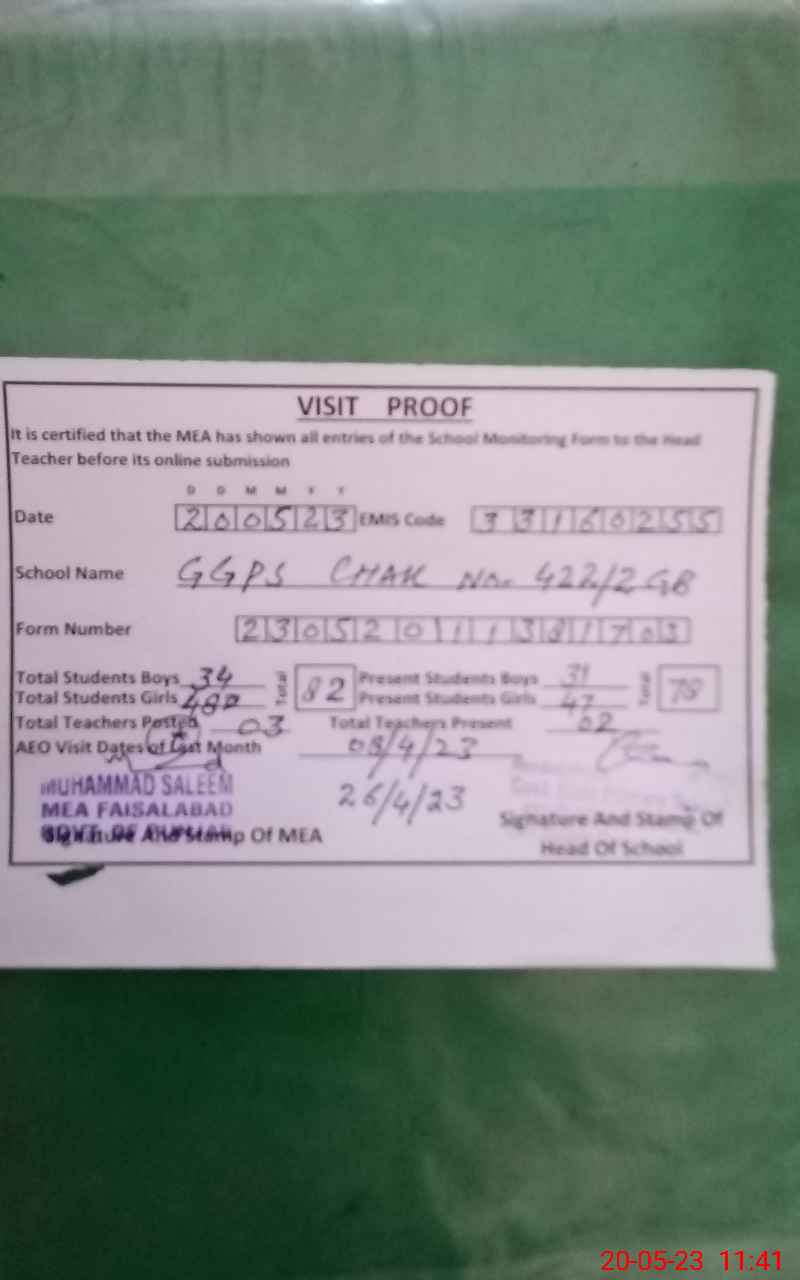 VISIT PROOF
It is certified that the MEA has shown all entries of the School Monitoring Form to the Head
Teacher before its online submission
D D M M Y Y
Date 200523 EMIS Code 33160255
School Name GGPS CHAK No. 422/2 GB
Form Number 23052011381703
Total Students Boys 34 Total 82 Present Students Boys 31 Total 78
Total Students Girls Present Students Girls 47
Total Teachers Posted 03 Total Teachers Present 02
AEO Visit Dates of Last Month 08/4/23
26/4/23
MUHAMMAD SALEEM
MEA FAISALABAD
GOVT. OF PUNJAB
Signature And Stamp Of MEA
Signature And Stamp Of
Head Of School
20-05-23 11:41